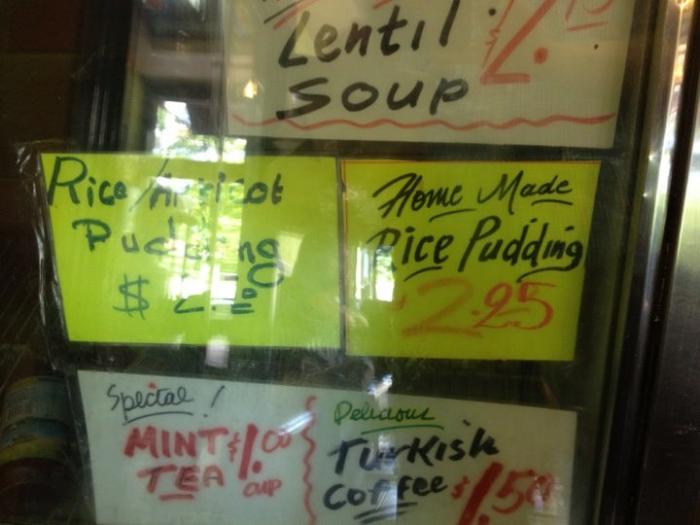 Lentil
Soup
Rice/Apricot
Pudding
$
Home Made
Rice Pudding
2.25
Special!
MINT $1.00
TEA cup
Delicious
Turkish
Coffee $1.50